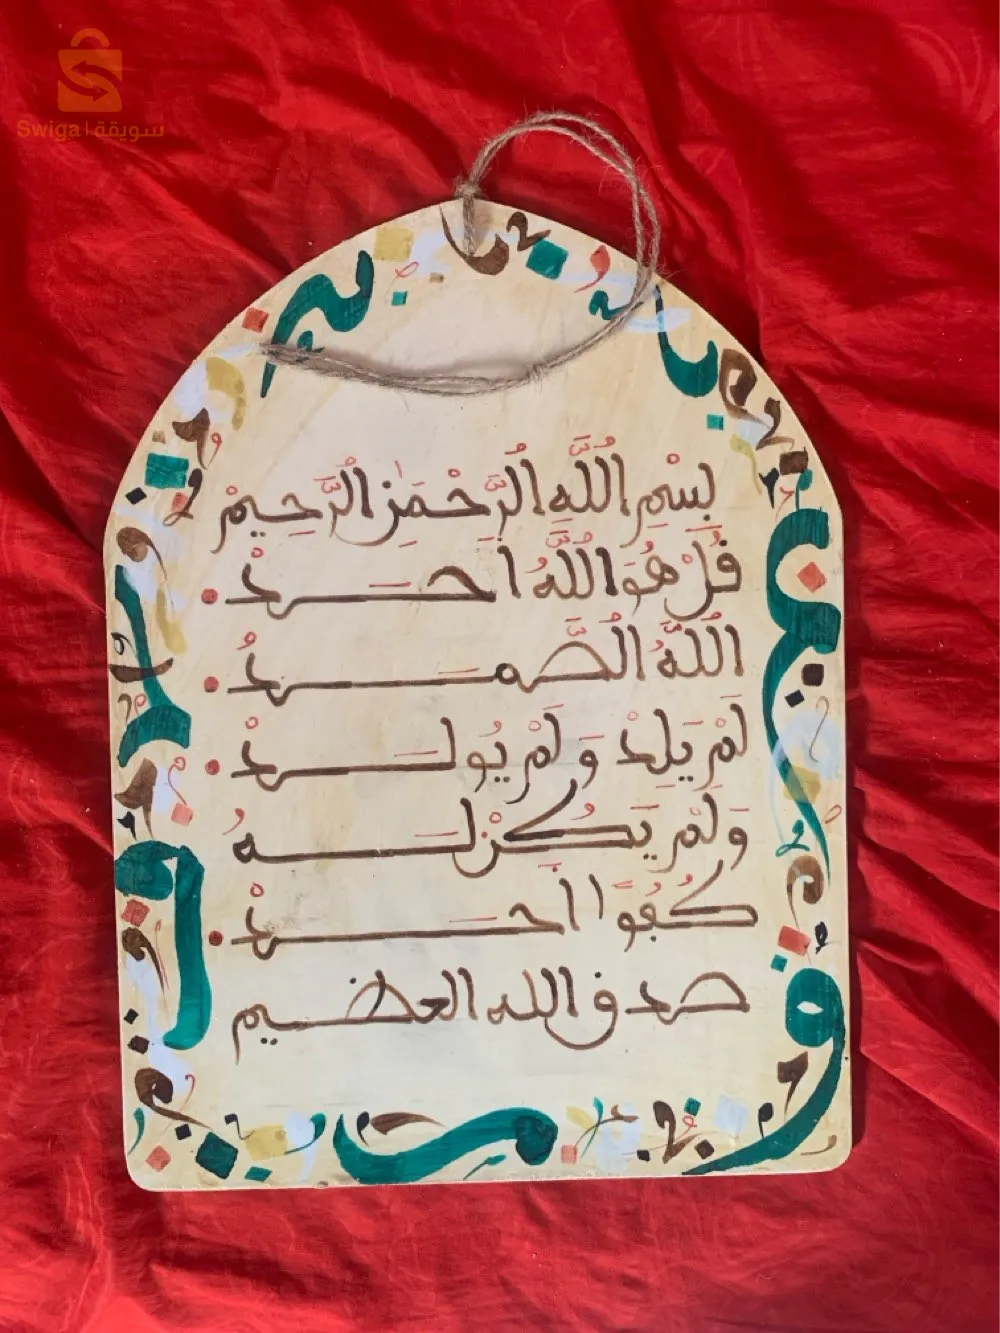 Swiga | سويقة
بِسْمِ اللَّهِ الرَّحْمَٰنِ الرَّحِيمْ
قُلْ هُوَ اللَّهُ أَحَدْ
اللَّهُ الصَّمَدُ
لَمْ يَلِدْ وَلَمْ يُولَدْ
وَلَمْ يَكُن لَهُ
كُفُوًا أَحَدْ
صدق الله العظيم